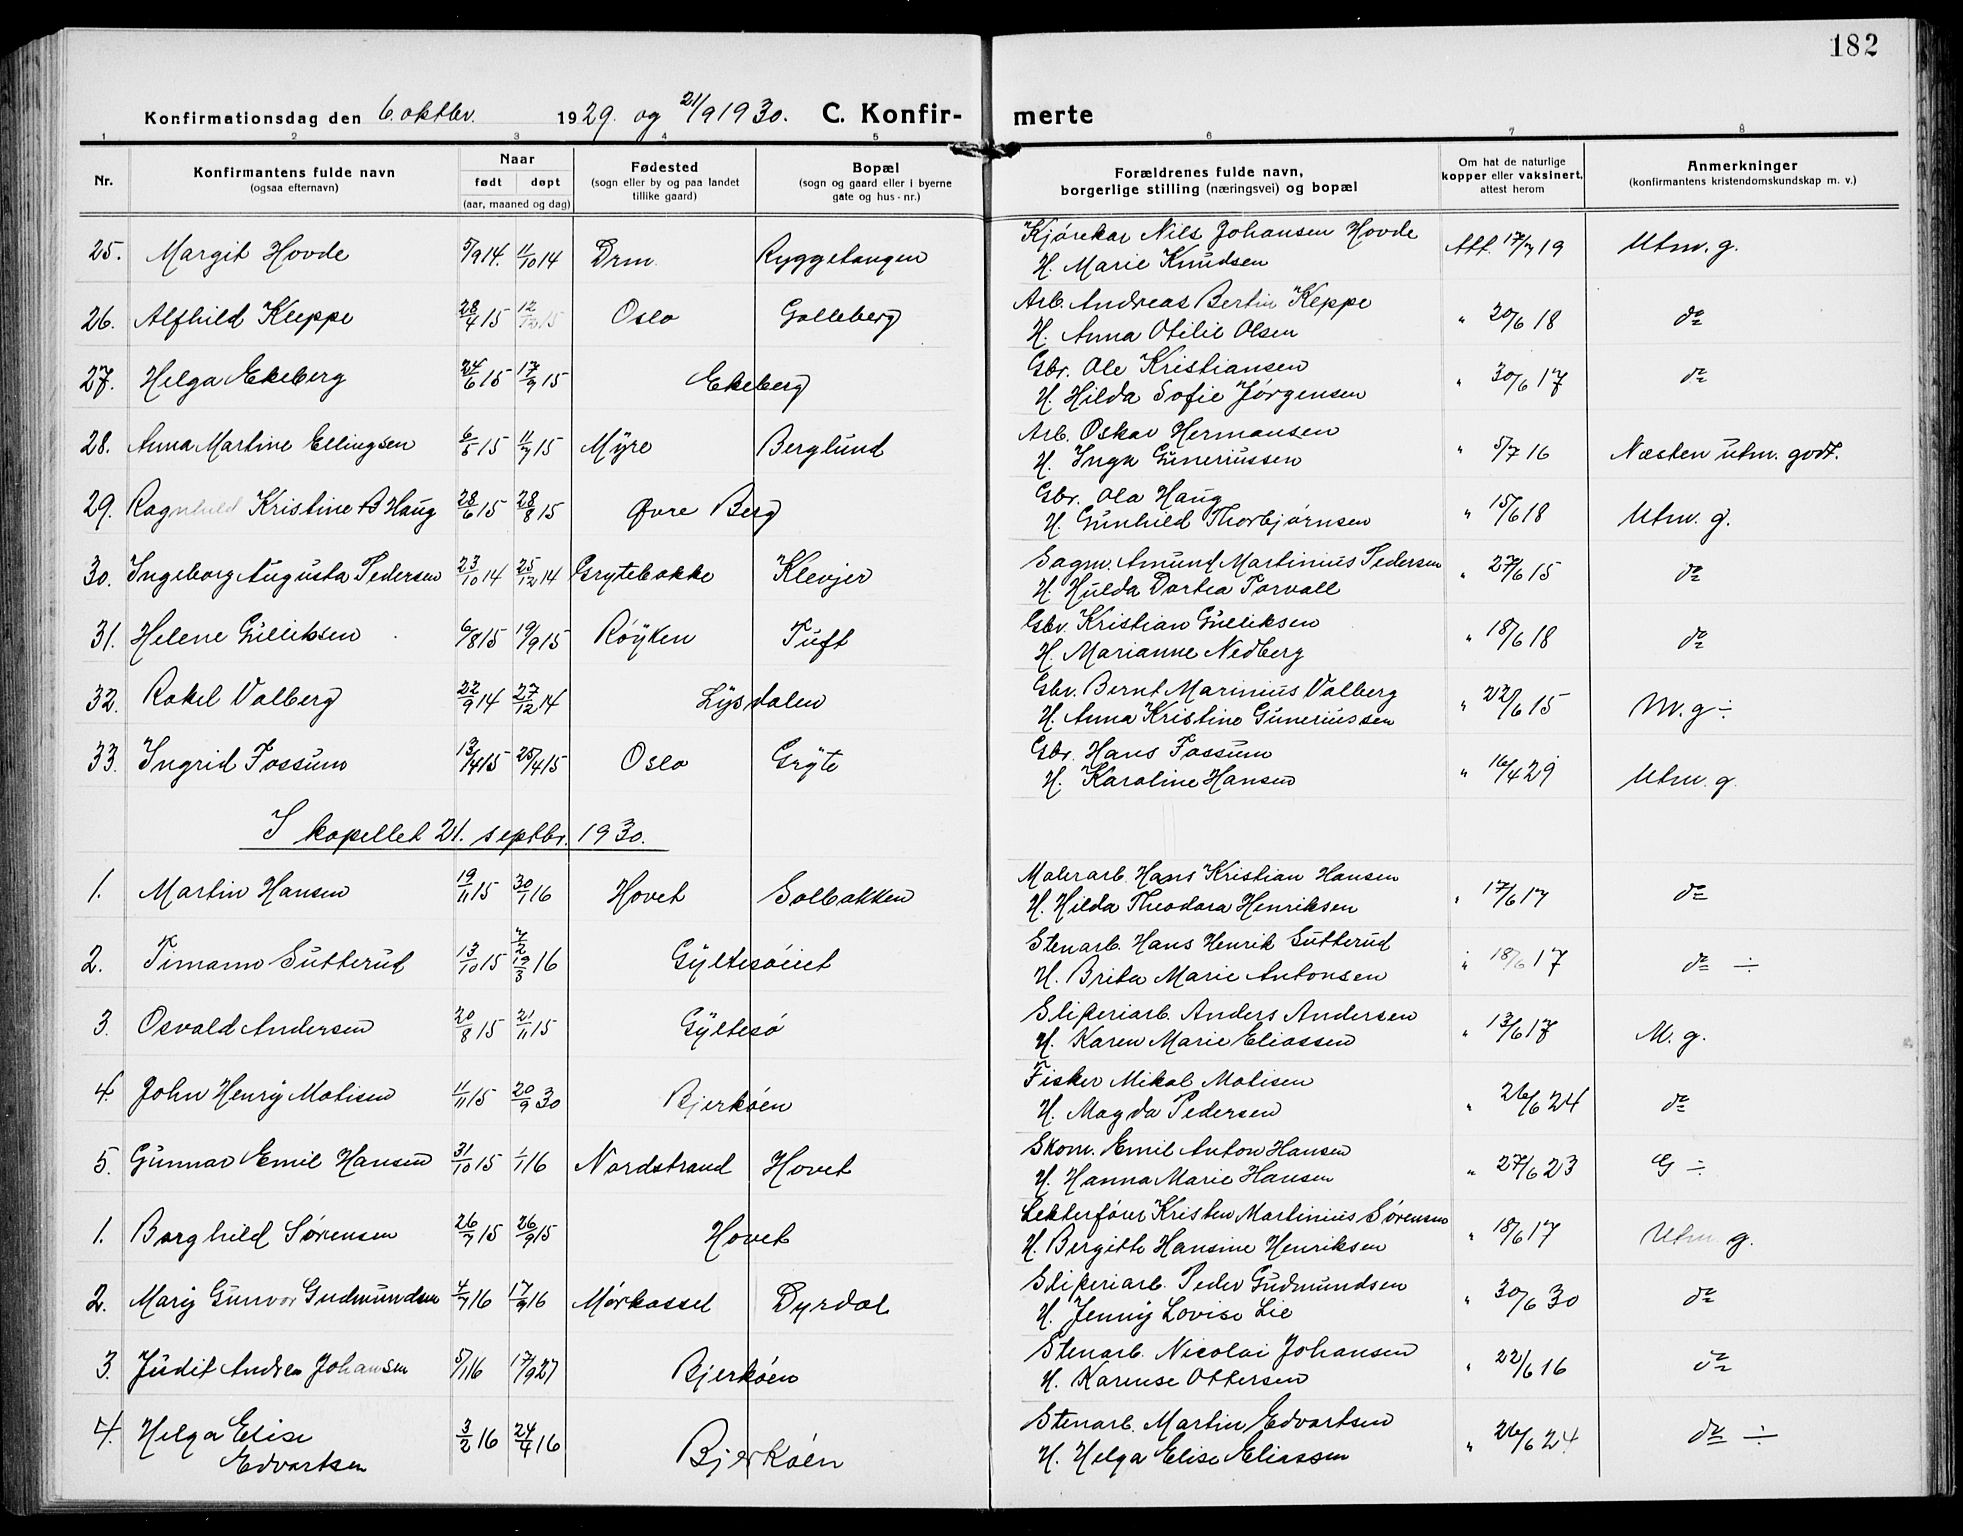 182
Konfirmationsdag den 6. oktbr. 1929. og 21/9 1930. C. Konfir- merte
1 2 3 4 5 6 7 8
Nr. Konfirmantens fulde navn (ogsaa efternavn) Naar født døpt (aar, maaned og dag) Fødested (sogn eller by og paa landet tillike gaard) Bopæl (sogn og gaard eller i byerne gate og hus-nr.) Forældrenes fulde navn, borgerlige stilling (næringsvei) og bopæl Om hat de naturlige kopper eller vaksinert, attest herom Anmerkninger (konfirmantens kristendomskundskap m. v.)
25. Margit Hovde 5/9 14. 11/10 14 Drm. Ryggetangen Kjørekar Nils Johansen Hovde Att. 17/7 19 Utm. g.
H. Marie Knudsen
26. Alfhild Kleppe 28/4 15 12/12 15 Oslo Galleberg Arb. Andreas Bertin Kleppe " 20/6 18 do
H. Anna Otilie Olsen
27. Helga Ekeberg 24/6 15 17/9 15 Ekeberg Gbr. Ole Kristiansen " 30/6 17 do
H. Hilda Sofie Jørgensen
28. Anna Martine Ellingsen 6/5 15 11/7 15 Myre Berglund Arb. Oskar Hermansen " 5/7 16 Næsten utm. godt.
H. Inga Guneriussen
29. Ragnhild Kristine B Haug 28/6 15 28/8 15 Øvre Berg Gbr. Ola Haug " 15/6 18 Utm. g.
H. Gunhild Thorbjørnsen
30. Ingeborg Augusta Pedersen 23/10 14 25/12 14 Grytebakke Klevjer Sagm. Amund Martinius Pedersen " 27/6 15 do
H. Hulda Dortea Torvall
31. Helene Gulliksen 6/8 15 19/9 15 Røyken Tuft Gbr. Kristian Gulliksen " 18/6 18 do
H. Marianne Nedberg
32. Rakel Valberg 22/9 14 27/12 14 Lysdalen Gbr. Bernt Marinius Valberg " 22/6 15 M. g ÷
H. Anna Kristine Guneriussen
33. Ingrid Fossum 13/4 15 25/4 15 Oslo Gryte Gbr. Hans Fossum " 16/4 29 Utm. g.
H. Karoline Hansen
I kapellet 21. septbr. 1930.
1. Martin Hansen 19/11 15 30/1 16 Hovet Solbakken Malerarb. Hans Kristian Hansen " 17/6 17 do
H. Hilda Theodora Henriksen
2. Timann Sutterud 13/10 15 7/2 19/3 16 Gyltesøiet Stenarb. Hans Henrik Sutterud " 18/6 17 do ÷
H. Brita Marie Antonsen
3. Osvald Andersen 20/8 15 21/11 15 Gyltesø Sliperiarb. Anders Andersen " 13/6 17 M. g.
H. Karen Marie Eliassen
4. John Henry Matisen 11/11 15 20/9 30 Bjerkøen Fisker Mikal Matisen " 26/6 24 do
H. Magda Pedersen
5. Gunnar Emil Hansen 31/10 15 1/1 16 Nordstrand Hovet Skom. Emil Anton Hansen " 27/6 23 G ÷
H. Hanna Marie Hansen
1. Borghild Sørensen 26/7 15 26/9 15 Hovet Lekterfører Kristen Martinius Sørensen " 18/6 17 Utm g.
H. Bergitte Hansine Henriksen
2. Mary Gunvor Gudmundsen 4/7 16 17/9 16 Mørkassel Dyrdal Sliperiarb. Peder Gudmundsen " 30/6 30 do
H. Jenny Lovise Lie
3. Judit Andrea Johansen 5/1 16 17/9 27 Bjerkøen Stenarb. Nicolai Johansen " 22/6 16 do
H. Karense Ottersen
4. Helga Elise Edvartsen 3/2 16 24/4 16 Bjerkøen Stenarb. Martin Edvartsen " 26/6 24 do ÷
H. Helga Elise Eliassen